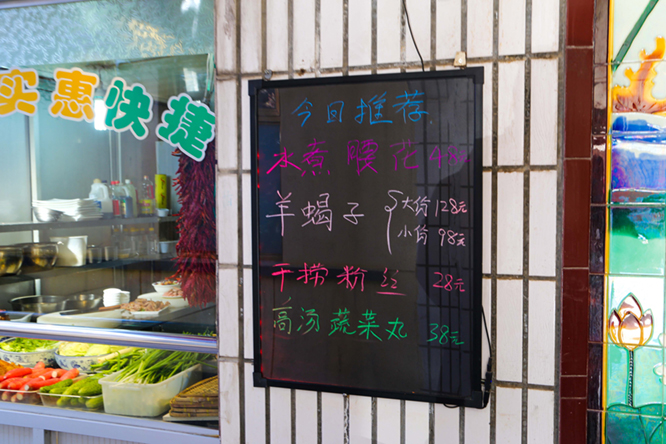 实惠快捷
今日推荐
水煮腰花48元
羊蝎子 大份128元
小份98元
干捞粉丝 28元
高汤蔬菜丸 38元